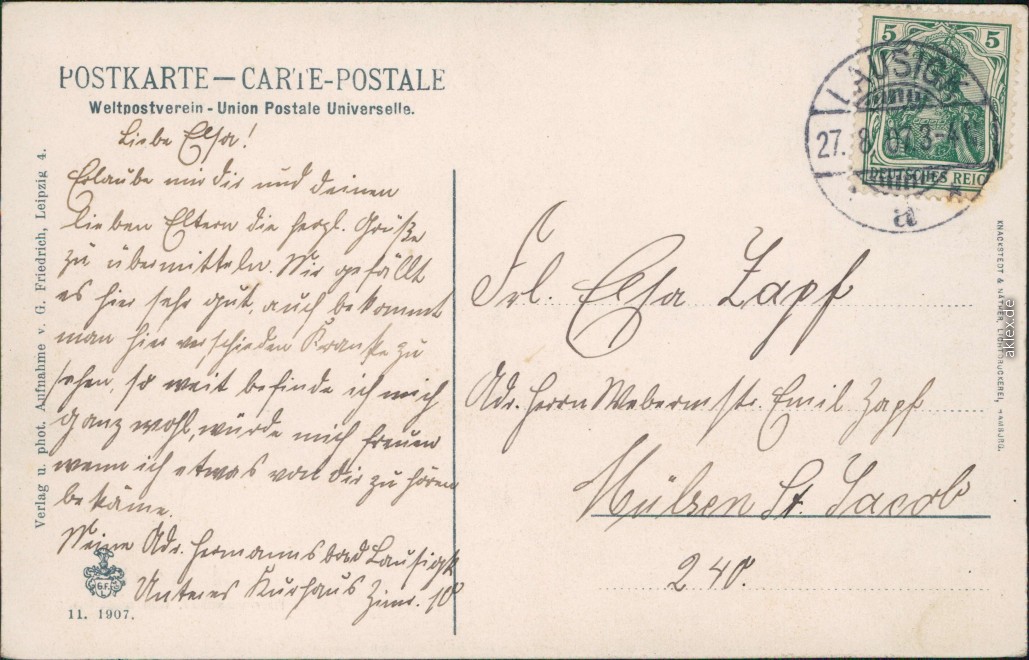 POSTKARTE — CARTE-POSTALE
Weltpostverein - Union Postale Universelle.
Liebe Elsa!
Erlaube mir dir und deinen
lieben Eltern die herzl. Grüße
zu übermitteln. Mir gefällt
es hier sehr gut, auch bekommt
man hier verschieden Kranke zu
sehen, so weit befinde ich mich
ganz wohl, würde mich freuen
wenn ich etwas von dir zu hören
bekäme.
Meine Adr. Hermannsbad Lausigk
Unteres Kurhaus Zimr. 10
11. 1907.
G.F.L.
Verlag u. phot. Aufnahme v. G. Friedrich, Leipzig 4.
5 5
DEUTSCHES REIC
LAUSIGK
27. 8. 07. 3-4N
a
Frl. Elsa Zapf
Adr. Herrn Webermstr. Emil Zapf
Mülsen St. Jacob
240.
KNACKSTEDT & NÄTHER, LICHTDRUCKEREI, HAMBURG.
aklex.de